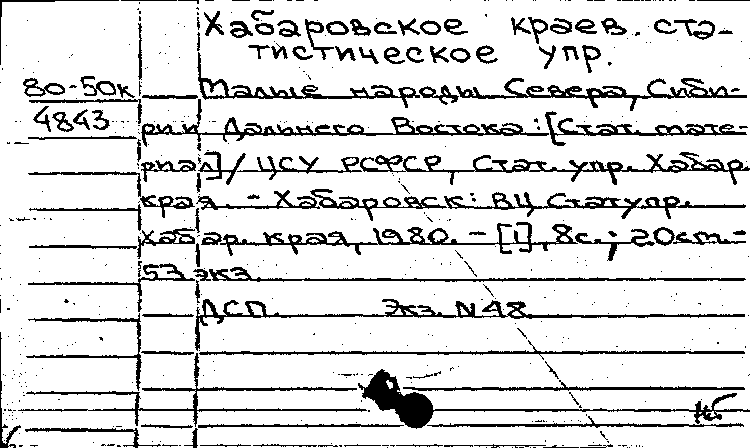 Хабаровское краев. ста-
тистическое упр.
80-50к
4843
Малые народы Севера, Сиби-
ри и Дальнего Востока: [Стат. мате-
риал] / ЦСУ РСФСР, Стат. упр. Хабар.
края. - Хабаровск: ВЦ Статупр.
Хабар. края, 1980. - [1], 8с.; 20см.-
57 экз.
ДСП. Экз. N48